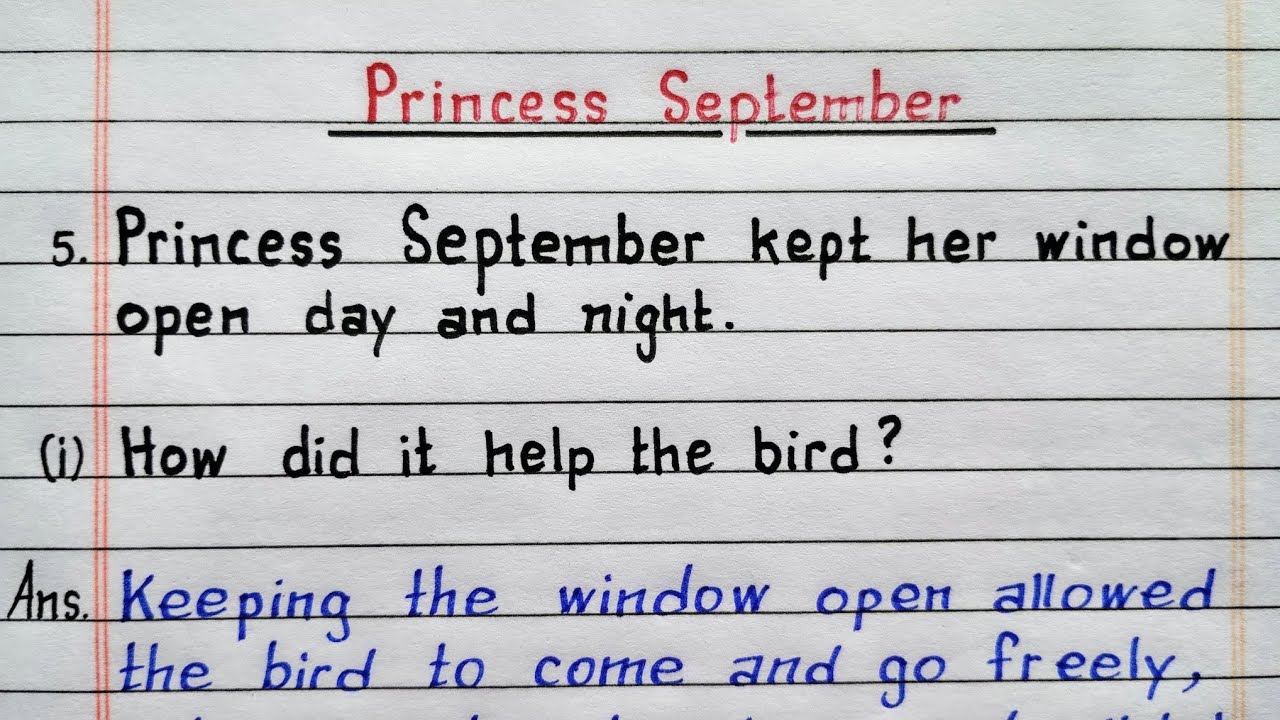 Princess September
5. Princess September kept her window
open day and night.
(i) How did it help the bird?
Ans. Keeping the window open allowed
the bird to come and go freely,